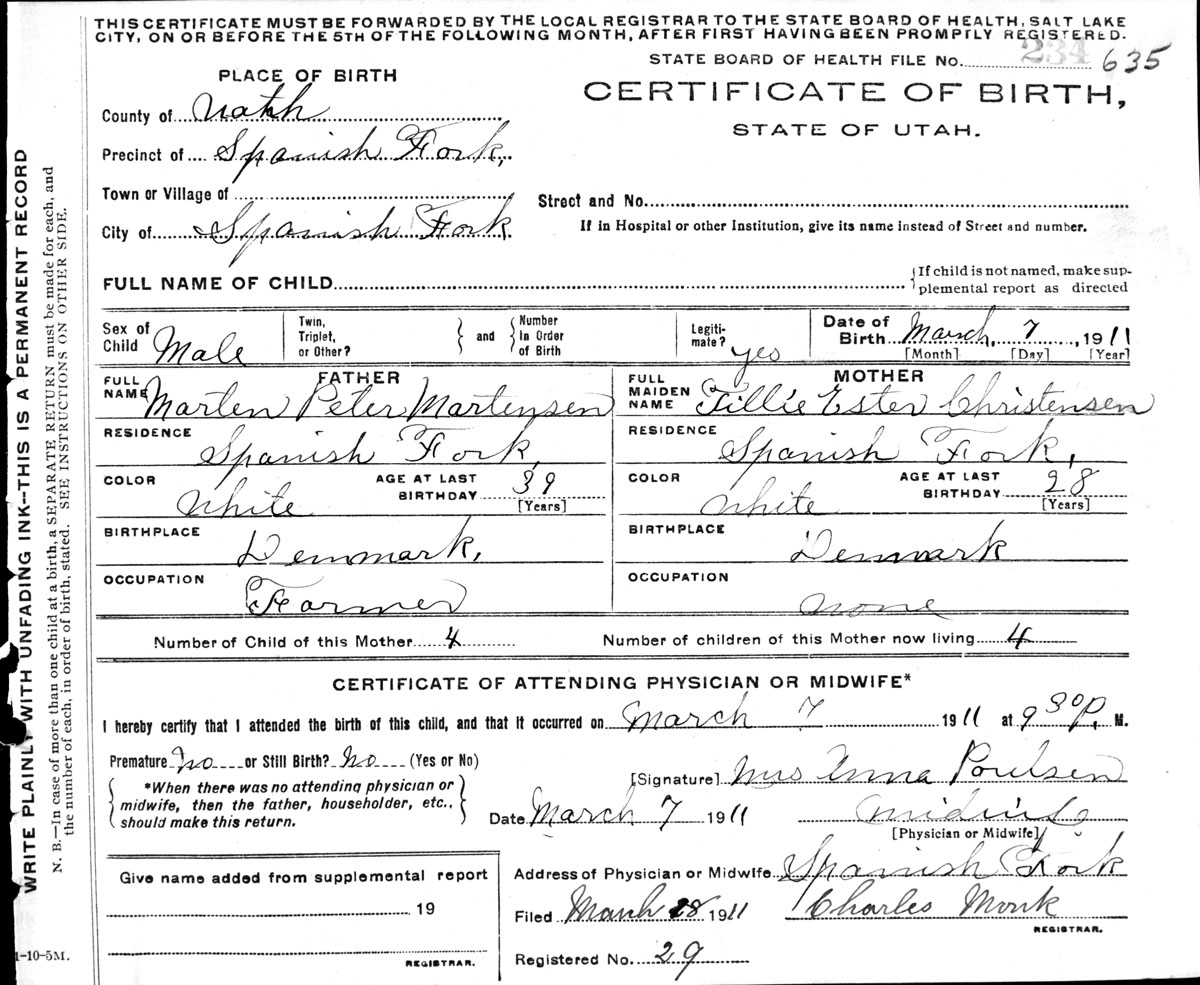 THIS CERTIFICATE MUST BE FORWARDED BY THE LOCAL REGISTRAR TO THE STATE BOARD OF HEALTH, SALT LAKE
CITY, ON OR BEFORE THE 5TH OF THE FOLLOWING MONTH, AFTER FIRST HAVING BEEN PROMPTLY REGISTERED.
STATE BOARD OF HEALTH FILE No. 234 635
PLACE OF BIRTH
CERTIFICATE OF BIRTH,
STATE OF UTAH.
County of Utah
Precinct of Spanish Fork,
Town or Village of
Street and No.
City of Spanish Fork
If in Hospital or other Institution, give its name instead of Street and number.
FULL NAME OF CHILD
{If child is not named, make sup-
plemental report as directed
Sex of Child Male
Twin, Triplet, or Other? } and { Number in Order of Birth
Legiti-mate? yes
Date of Birth March, 7, 1911
[Month] [Day] [Year]
FATHER
FULL NAME Marten Peter Martensen
MOTHER
FULL MAIDEN NAME Tillie Ester Christensen
RESIDENCE Spanish Fork,
RESIDENCE Spanish Fork,
COLOR White AGE AT LAST BIRTHDAY 39 [Years]
COLOR White AGE AT LAST BIRTHDAY 28 [Years]
BIRTHPLACE Denmark,
BIRTHPLACE Denmark
OCCUPATION Farmer
OCCUPATION none
Number of Child of this Mother 4 Number of children of this Mother now living 4
CERTIFICATE OF ATTENDING PHYSICIAN OR MIDWIFE*
I hereby certify that I attended the birth of this child, and that it occurred on March 7 1911 at 9 30 P. M.
Premature No or Still Birth? No (Yes or No)
[Signature] Mrs Anna Poulsen
{ *When there was no attending physician or
midwife, then the father, householder, etc.,
should make this return. }
Date March 7 1911 midwife
[Physician or Midwife]
Give name added from supplemental report
19
REGISTRAR.
Address of Physician or Midwife Spanish Fork
Filed March 28 1911 Charles Monk
REGISTRAR.
Registered No. 29
WRITE PLAINLY WITH UNFADING INK--THIS IS A PERMANENT RECORD
N. B.—In case of more than one child at a birth, a SEPARATE RETURN must be made for each, and
the number of each, in order of birth, stated. SEE INSTRUCTIONS ON OTHER SIDE.
1-10-5M.